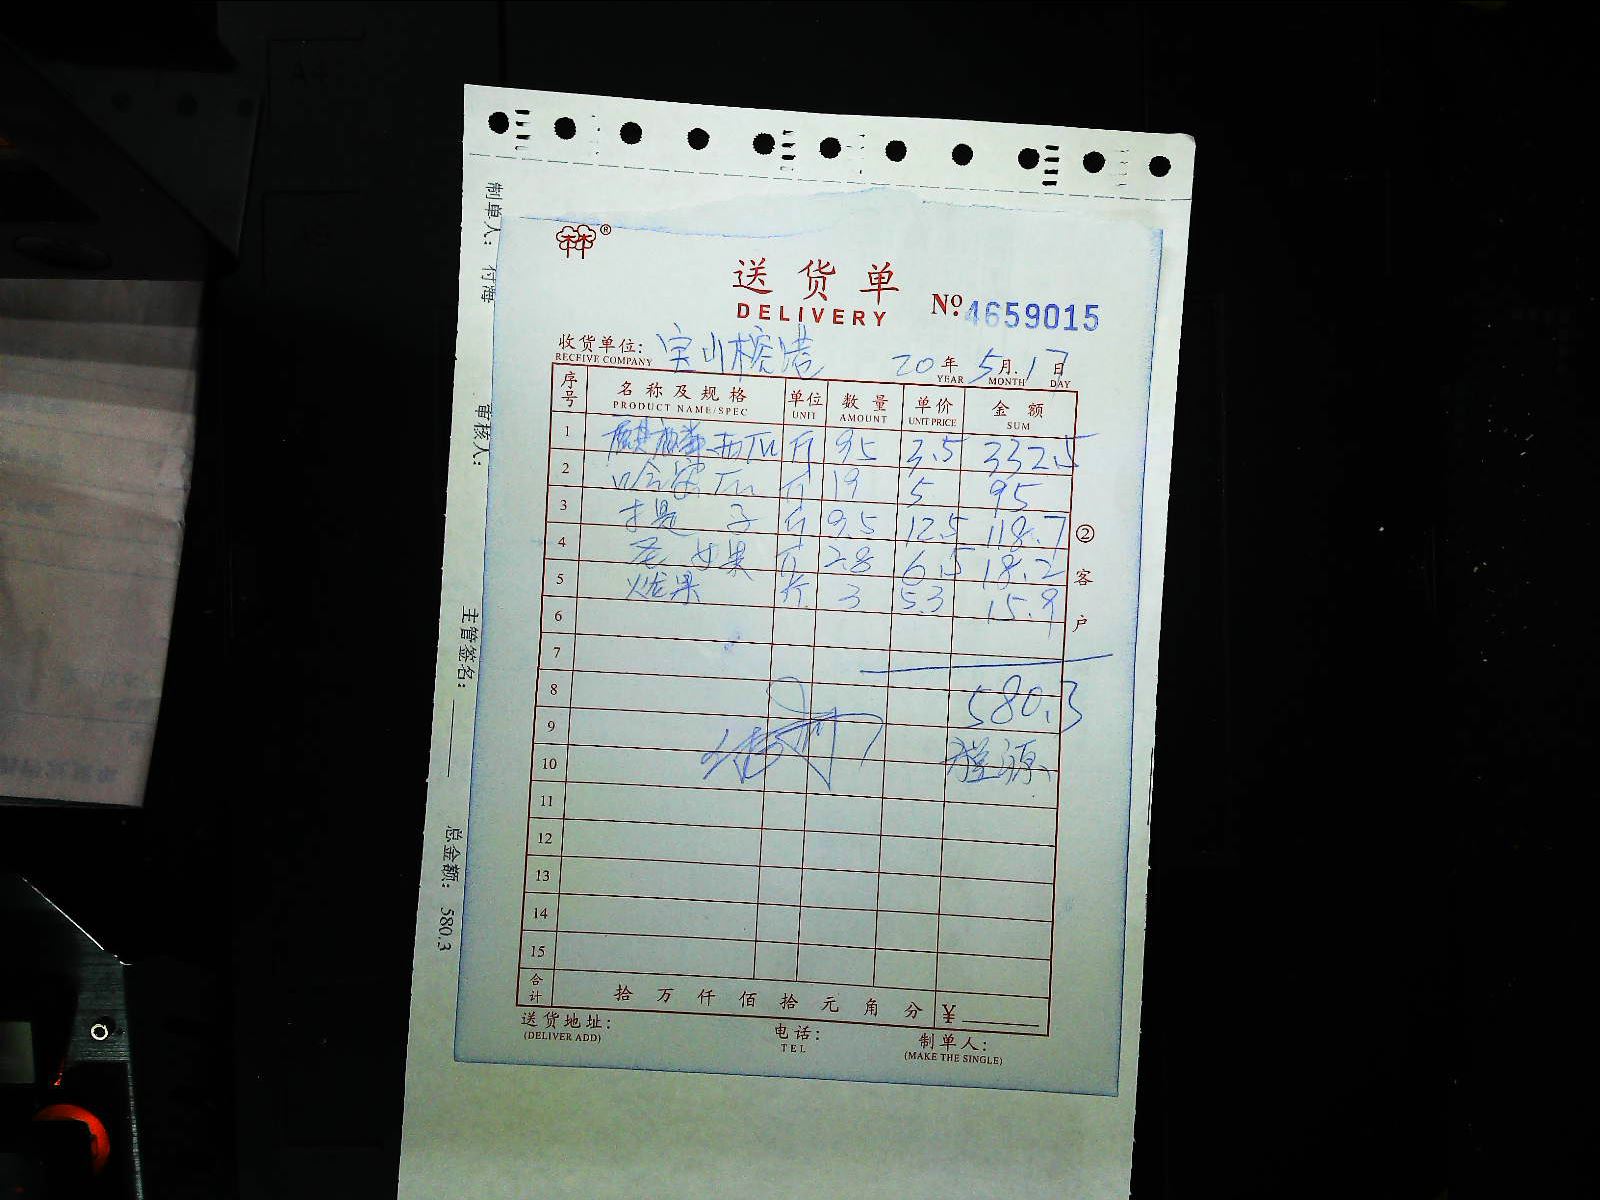 送货单
DELIVERY
№ 4659015
收货单位: 宝山榕港 20年 5月 17日
RECFIVE COMPANY YEAR MONTH DAY
序号 名称及规格 单位 数量 单价 金额
PRODUCT NAME/SPEC UNIT AMOUNT UNIT PRICE SUM
1 麒麟西瓜 斤 95 3.5 332.5
2 哈密瓜 斤 19 5 95
3 提子 斤 9.5 12.5 118.7
4 圣女果 斤 2.8 6.5 18.2
5 火龙果 斤 3 5.3 15.9
6
7
8 580.3
9
10 源
11
12
13
14
15
合计 拾 万 仟 佰 拾 元 角 分 ¥
送货地址: 电话: 制单人:
(DELIVER ADD) TEL (MAKE THE SINGLE)
②客户
制单人: 付海 审核人: 主管签名: 总金额: 580.3